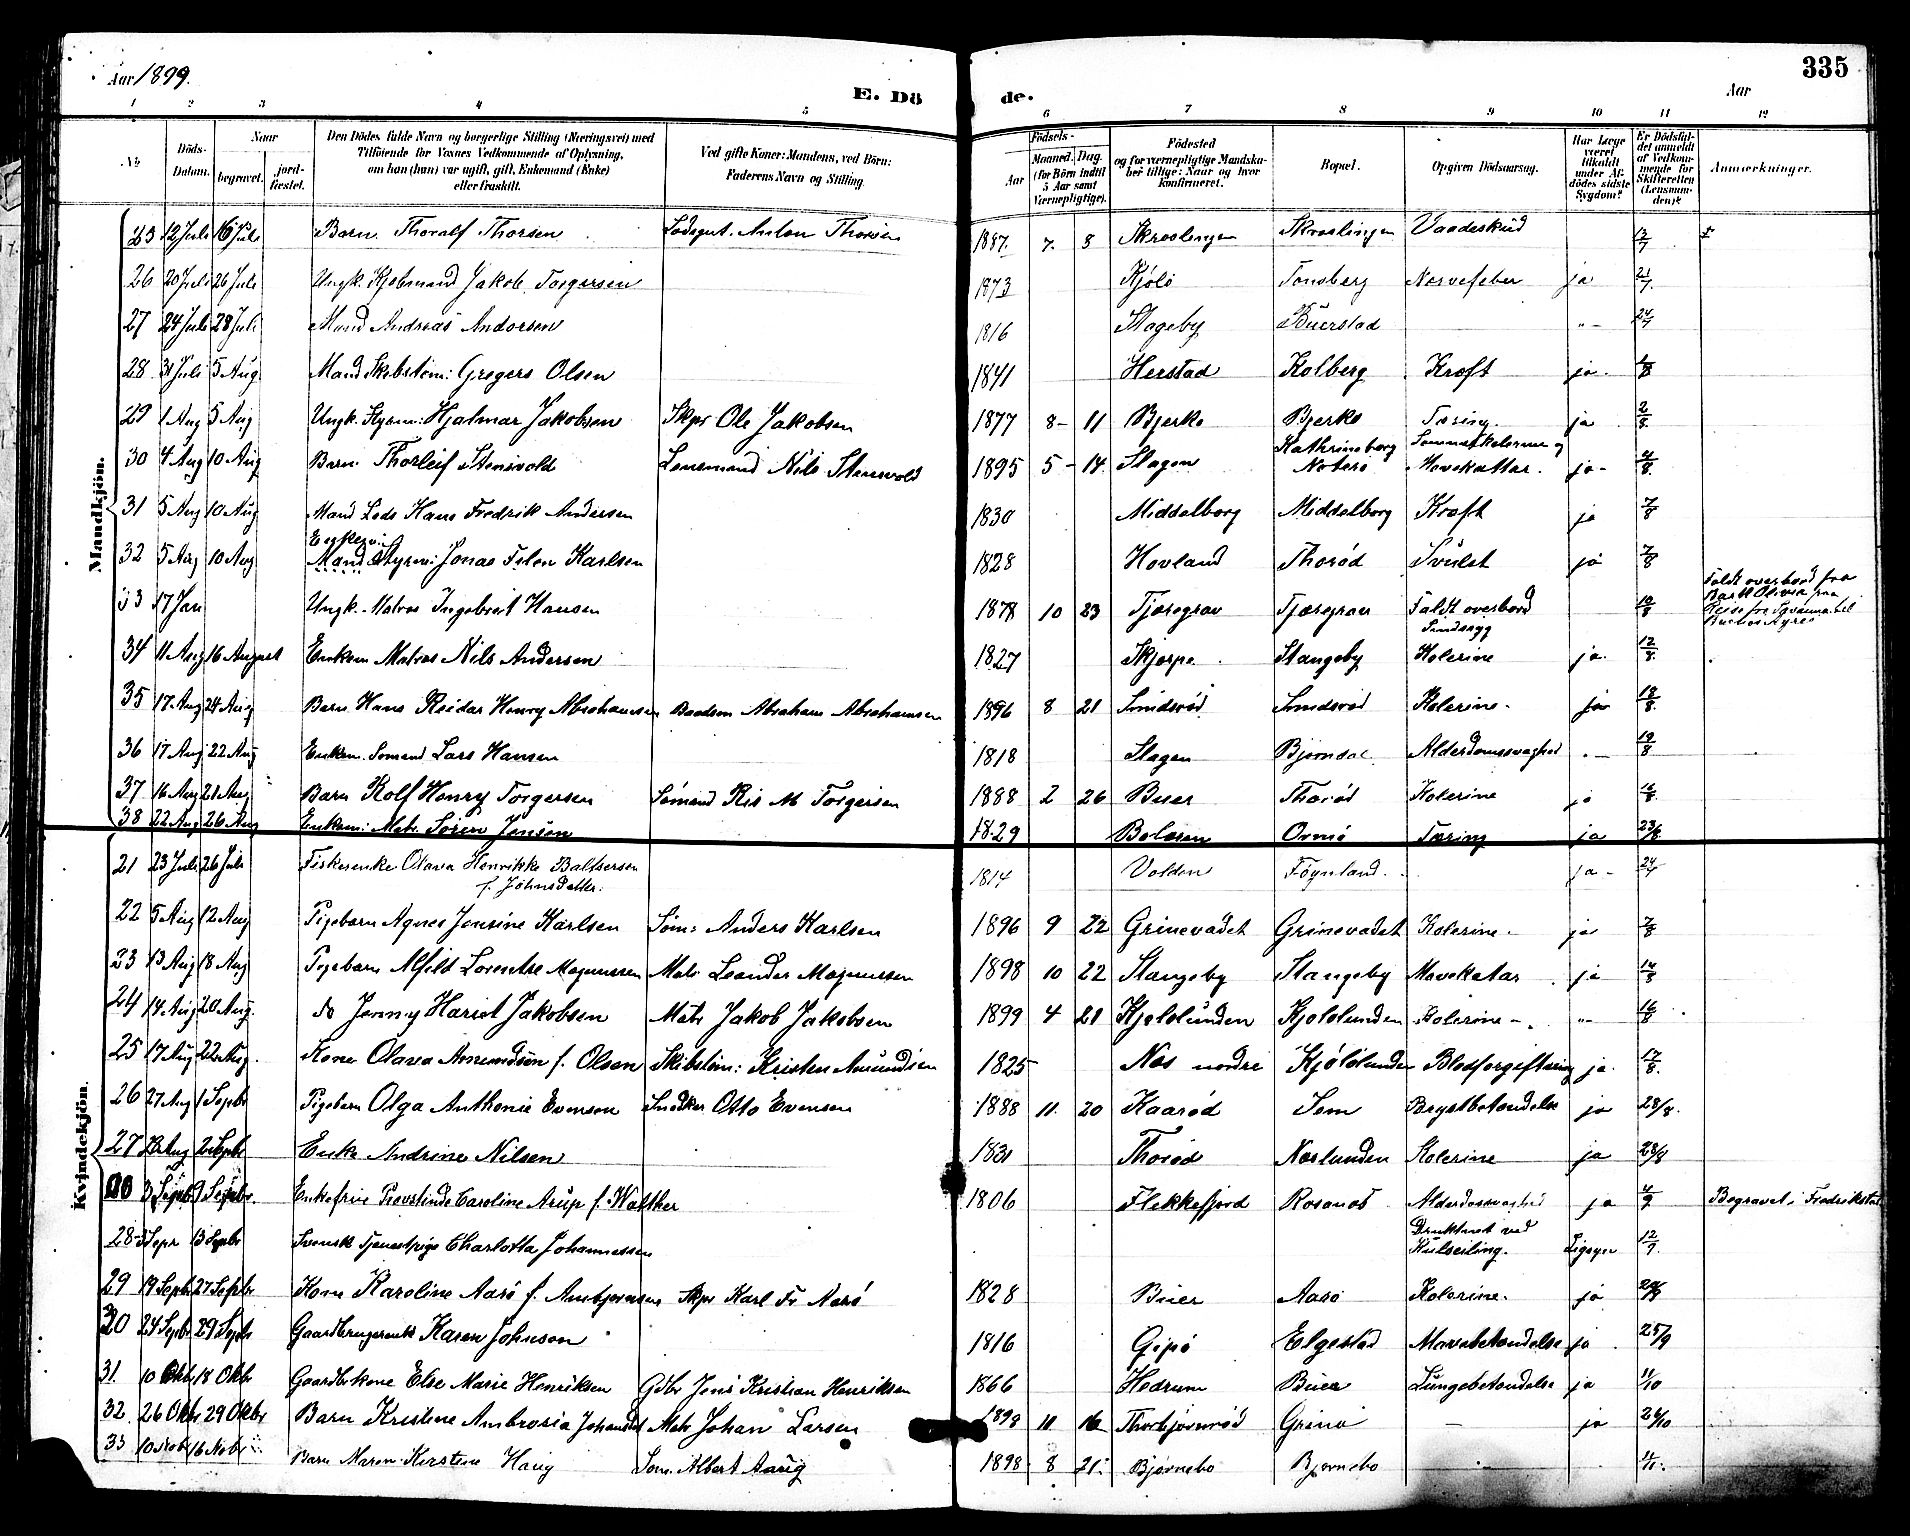 335
Aar 1899.
E. Dö de.
Aar
1 2 3 4 5 6 7 8 9 10 11 12
No
Döds-Datum.
Naar begravet. jordfæstet.
Den Dödes fulde Navn og borgerlige Stilling (Næringsvei) med Tilföiende for Voxnes Vedkommende af Oplysning, om han (hun) var ugift, gift, Enkemand (Enke) eller fraskilt.
Ved gifte Koner: Mandens, ved Börn: Faderens Navn og Stilling.
Födsels-
Aar Maaned. Dag. (for Börn indtil 5 Aar samt Værnepligtige).
Födested og for værnepligtige Mandskaber tillige: Naar og hvor konfirmeret.
Bopæl.
Opgiven Dödsaarsag.
Har Læge været tilkaldt under Afdödes sidste Sygdom?
Er Dödsfaldet anmeldt af Vedkommende for Skifteretten (Lensmanden)?
Anmærkninger.
Mandkjön.
12 Juli 16 Juli Barn Thoralf Thorsen Lodsgut. Anton Thorsen 1887. 7. 8 Skravlingen Skravlingen Vaadeskud 13/7
26 20 Juli 26 Juli Ungk. Kjobmand Jakob Torgersen 1873 Kjölö Tonsberg Nervefeber ja 21/7.
27 24 Juli 28 Juli Mand Andreas Andersen 1816 Slageby Buerstad "- 24/7
28. 31 Juli 5 Aug. Mand Skibstöm: Gregers Olsen 1841 Herstad Kolberg Kræft ja. 1/8
29 1 Aug 5 Aug Ungk. Styrm: Hjalmar Jakobsen Skpr Ole Jakobsen 1877 8- 11 Bjerke Bjerke Tæring. ja 2/8
30 4 Aug 10 Aug Barn Thorleif Stensvold Lensmand Nils Stensvold 1895 5 - 14 Slagen Kathrineborg Nøterø Mavekattar. ja- 4/8
31 5 Aug 10 Aug Mand Lods Hans Fredrik Andersen 1830 Middelborg Middelborg Kræft ja 7/8
32 5 Aug 10 Aug Mand Styrm: Jonas Karlsen 1828 Hovland Thorød Svulst ja 7/8
33 17 Jan Ungk. Matros Ingebret Hansen 1878 10 23 Tjæregrav Tjæregrav Faldt overbord 10/8 Faldt overbord fra Bark Olivia paa Reise fra til Buenos Ayres
34 11 Aug 16 August Enkem Matros Nils Andersen 1827 Skjerpe Stangeby Kolerine ja. 12/8.
35 17 Aug 24 Aug Barn Hans Reidar Henry Abrahamsen Baadsm Abraham Abrahamsen 1896 8 21 Smidsrød Smidsrød Kolerine. ja 18/8.
36 17 Aug 22 Aug Enkem. Sømand Lars Hansen 1818 Slagen Bjørndal. Alderdomssvaghed .- 19/8
37 16 Aug 21 Aug Barn Rolf Henry Torgersen Sømand Ris M Torgersen 1888 2 26 Buer Thorød Kolerine ja 16/8.
38 22 Aug 26 Aug Enkem: Matr Søren Jensen 1829 Bolæren Ormø Tæring ja 23/8
Kvindekjön.
21 23 Juli 26 Juli Fiskerenke Olava Henrikke Baltsersen f. Johnsdatter. 1814 Volden Föynland. ja- 24/7
22 5 Aug 12 Aug Pigebarn Agnes Jensine Karlsen Søm: Anders Karlsen 1896 9 22 Grinevadet Grinevadet Kolerine - ja 7/8
23 13 Aug 18 Aug Pigebarn Alfild Lorentse Magnussen Matr Leander Magnussen 1898 10 22 Stangeby Stangeby Mavekatar ja 14/8
24 14 Aug 20 Aug. do Jenny Hariet Jakobsen Matr Jakob Jakobsen 1899 4 21 Kjølølunden Kjølølunden Kolerine -. "- 16/8
25 17 Aug 22 Aug. Kone Olava Amundsen f. Olsen Skibstöm: Kristen Amundsen 1825- Nes nordre Kjölölunden Blodforgiftning ja 17/8.
26 27 Aug 1 Sepbr Pigebarn Olga Anthonie Evensen Snedker Otto Evensen 1888 11. 20 Kaarød Sem Brystbetændelse ja 28/8.
27 Aug 2 Sepbr Enke Andrine Nilsen 1831 Thorød Nørlunden Kolerine ja 28/8
3 Sepbr 9 Sepbr. Enkefrue Provstinde Caroline Arup f. Walther 1806 Flekkefjord Rosanes Alderdomssvaghed ja 4/9 Begravet i Fredrikstad
28 Sepr 13 Sepbr Svensk Tjenestpige Charlotta Johannessen Druknet ved Kulseiling. Ligsyn 12/9.
29 19 Sepbr 27 Sepbr Kone Karoline Aarö f. Ambjørnsen Skpr Karl Fr Aarö 1828 Buer Aarø Kolerine. ja
30 24 Sepbr 29 Sepb Gaardbrugerenke Karen Johnson 1816 Gipø Elgestad Mavebetændelse ja 25/9
31. 10 Okbr 18 Okbr Gaardbrkone Else Marie Henriksen Gdbr Jens Kristian Henriksen 1866 Hedrum Buer Lungebetændelse ja 11/10
32. 26 Okbr 29 Okbr Barn Kristine Ambrosia Matr Johan Larsen 1898 11 16 Thorbjørnrød Grinø - ja 26/10
33 10 Nobr 16 Nobr Barn Maren Kirstine Haug Søm. Albert Aarug 1898 8 21. Bjørnebo Bjørnebo